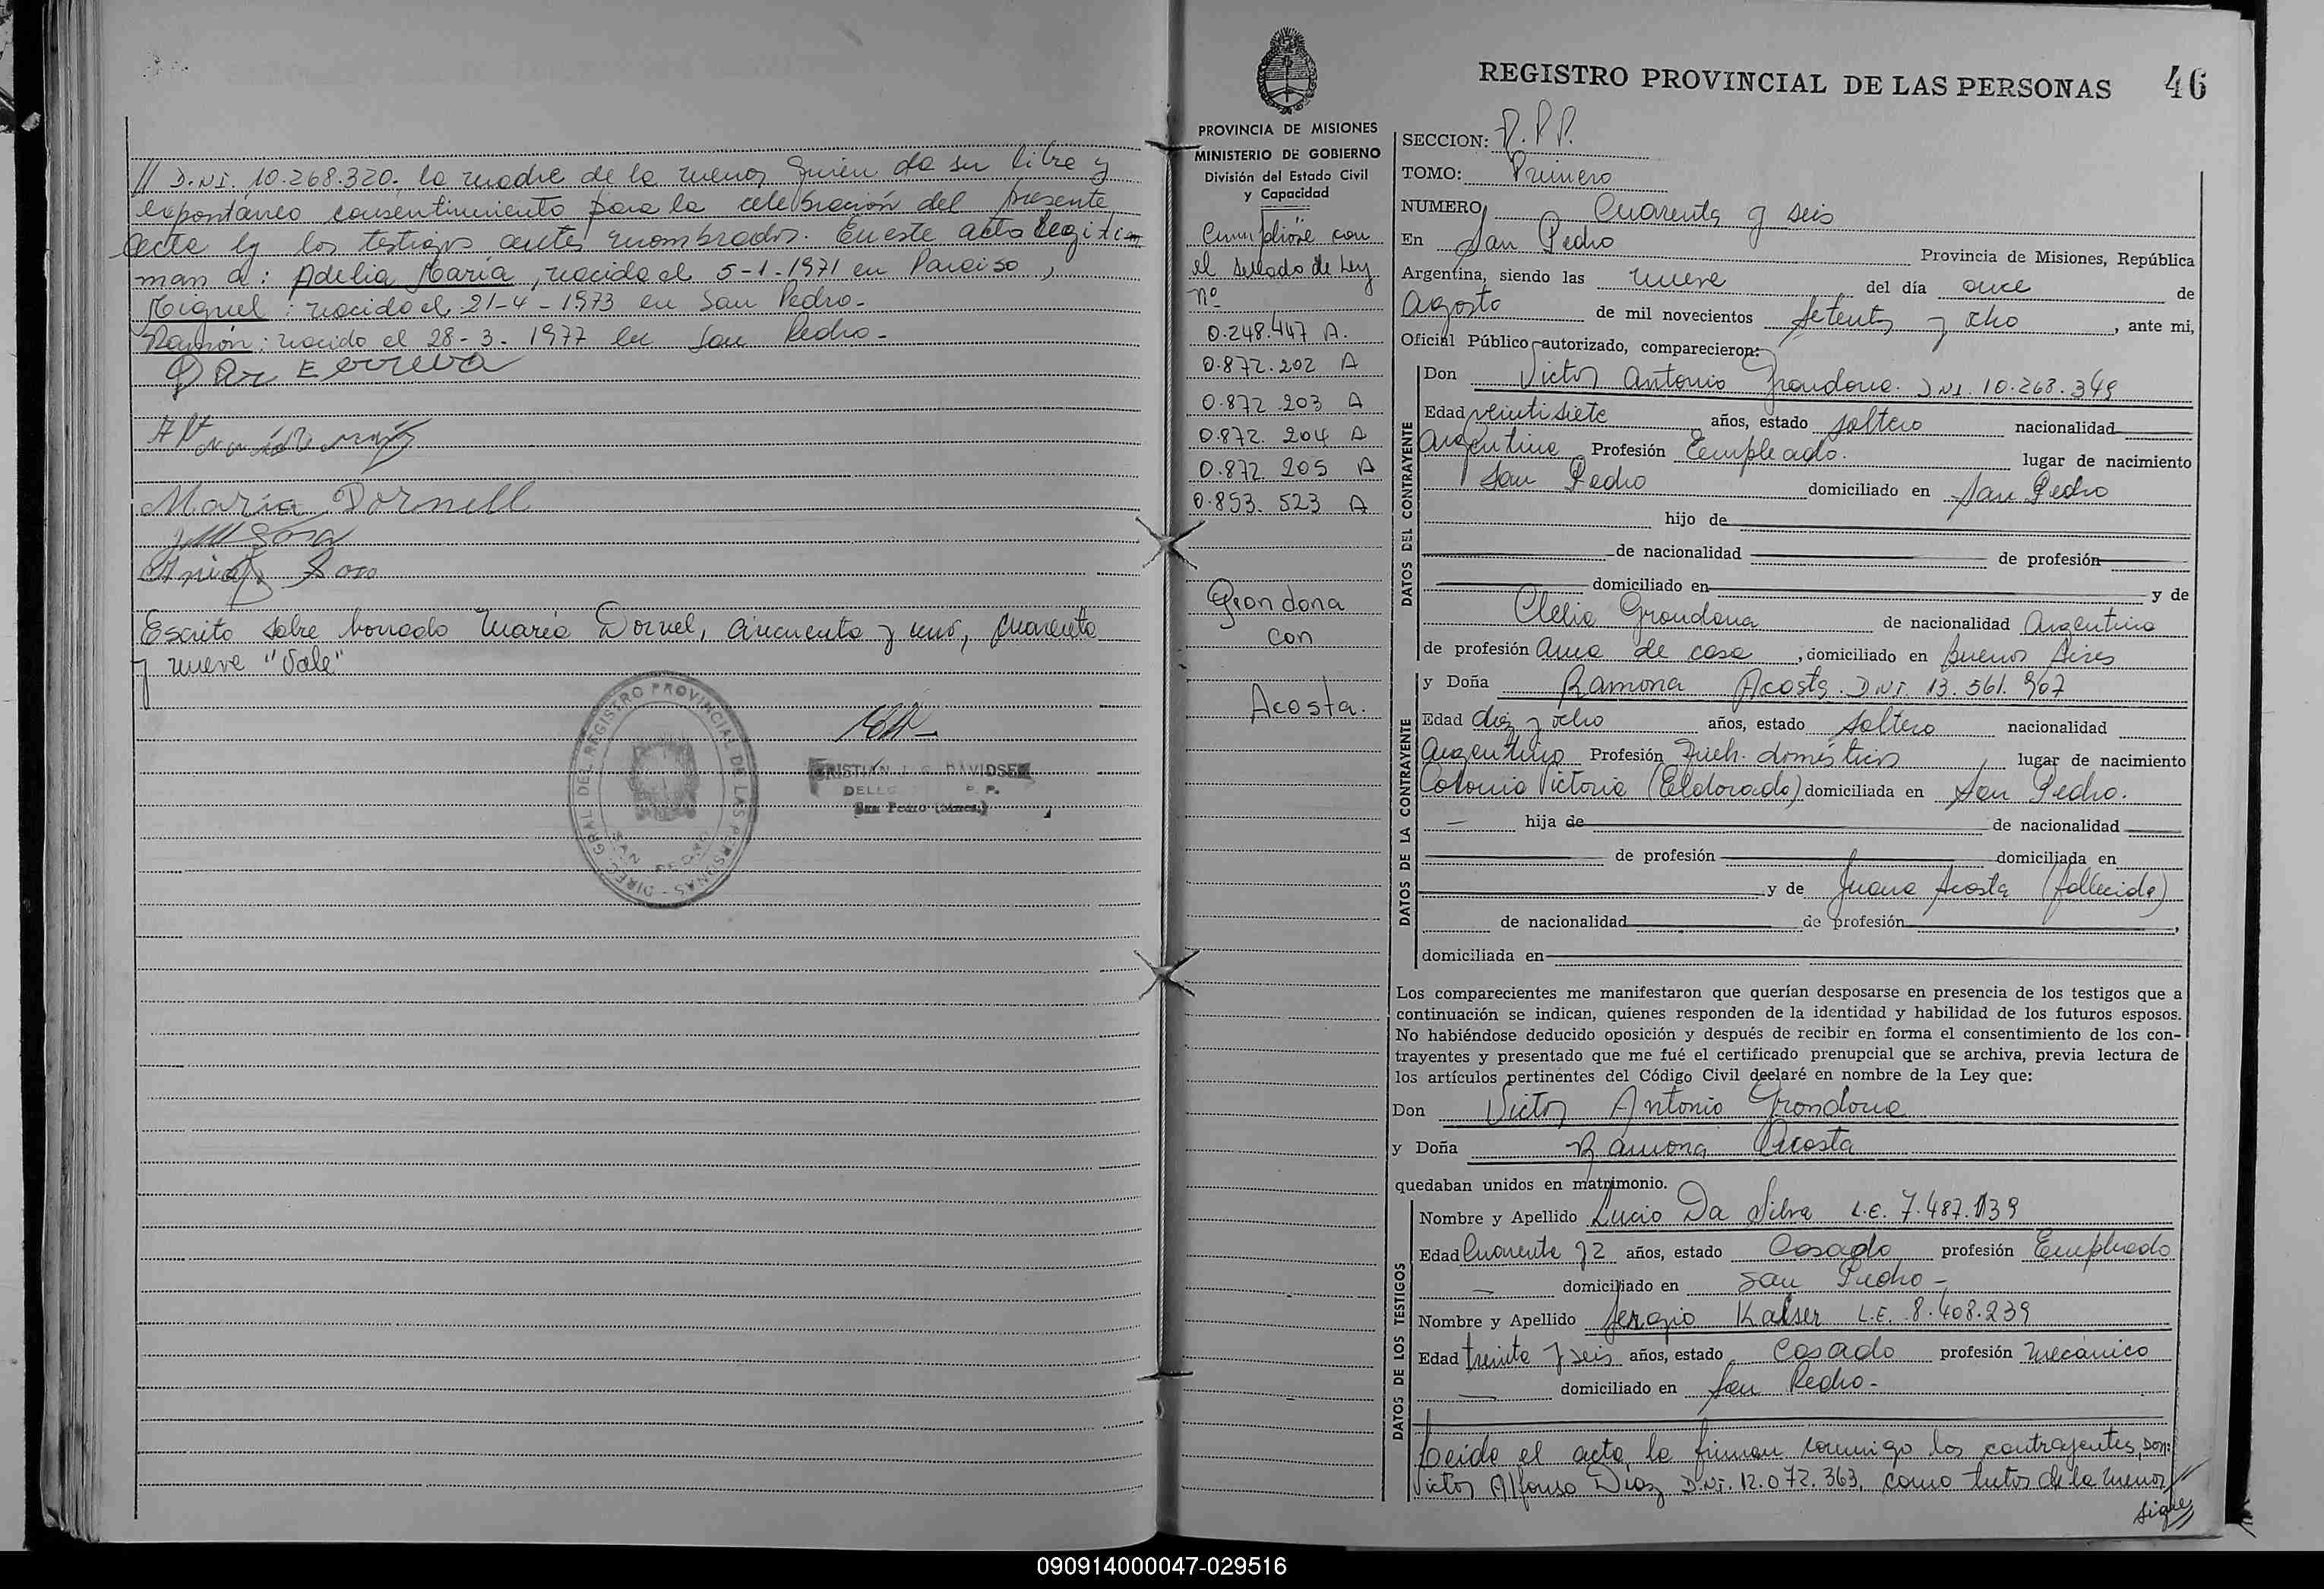 // D.N.I. 10.268.320. la madre de la menor quien da su libre y
expontáneo consentimiento para la celebración del presente
acta y los testigos antes nombrados. En este acto legitim
man a: Adelia María, nacida el 5-1-1971 en Paraiso,
Miguel: nacido el 21-4-1973 en San Pedro-
Ramón: nacido el 28-3-1977 en San Pedro-
María Dornell
Sosa
Escrito sobre borrado María Dornel, cincuenta y uno, cuarenta
y nueve "Vale"
DIREC. GRAL. DEL REGISTRO PROVINCIAL DE LAS PERSONAS
SAN PEDRO
CRISTIAN J. DAVIDSEN
San Pedro (Mnes.)
PROVINCIA DE MISIONES
MINISTERIO DE GOBIERNO
División del Estado Civil
y Capacidad
Cumplióse con
el sellado de Ley
nº
0.248.447 A.
0.872.202 A
0.872.203 A
0.872.204 A
0.872.205 A
0.853.523 A
Grondona
con
Acosta.
REGISTRO PROVINCIAL DE LAS PERSONAS 46
SECCION: D.P.P.
TOMO: Primero
NUMERO Cuarenta y seis
En San Pedro Provincia de Misiones, República
Argentina, siendo las nueve del día once de
Agosto de mil novecientos setenta y ocho, ante mi,
Oficial Público autorizado, comparecieron:
DATOS DEL CONTRAYENTE
Don Victor Antonio Grondona. DNI. 10.268.349
Edad veintisiete años, estado soltero nacionalidad
Argentina Profesión Empleado. lugar de nacimiento
San Pedro domiciliado en San Pedro
hijo de
de nacionalidad de profesión
domiciliado en y de
Clelia Grondona de nacionalidad Argentina
de profesión ama de casa, domiciliado en Buenos Aires
DATOS DE LA CONTRAYENTE
y Doña Ramona Acosta. DNI. 13.561.967
Edad diez y ocho años, estado soltera nacionalidad
Argentina Profesión Queh. domésticos lugar de nacimiento
Colonia Victoria (Eldorado) domiciliada en San Pedro.
hija de de nacionalidad
de profesión domiciliada en
y de Juana Acosta (fallecida)
de nacionalidad de profesión,
domiciliada en
Los comparecientes me manifestaron que querían desposarse en presencia de los testigos que a
continuación se indican, quienes responden de la identidad y habilidad de los futuros esposos.
No habiéndose deducido oposición y después de recibir en forma el consentimiento de los con-
trayentes y presentado que me fué el certificado prenupcial que se archiva, previa lectura de
los artículos pertinentes del Código Civil declaré en nombre de la Ley que:
Don Victor Antonio Grondona
y Doña Ramona Acosta
quedaban unidos en matrimonio.
DATOS DE LOS TESTIGOS
Nombre y Apellido Lucio Da Silva L.E. 7.487.139
Edad Cuarenta y 2 años, estado Casado profesión Empleado
domiciliado en San Pedro-
Nombre y Apellido Sergio Kaiser L.E. 8.408.239
Edad treinta y seis años, estado Casado profesión mecánico
domiciliado en San Pedro-
Leída el acta, la firman conmigo los contrayentes, Don:
Victor Alfonso Diaz D.NI. 12.072.363, como tutor de la menor//
sigue//
090914000047-029516